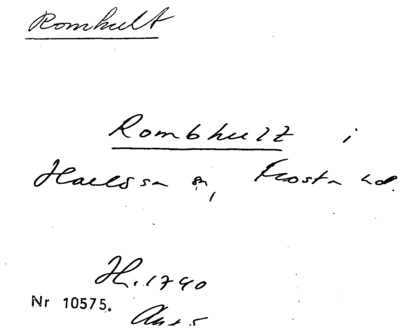 Romhult
Rombhult i
Hallssa sn, Frosta hd.
H. 1740
Nr 10575.